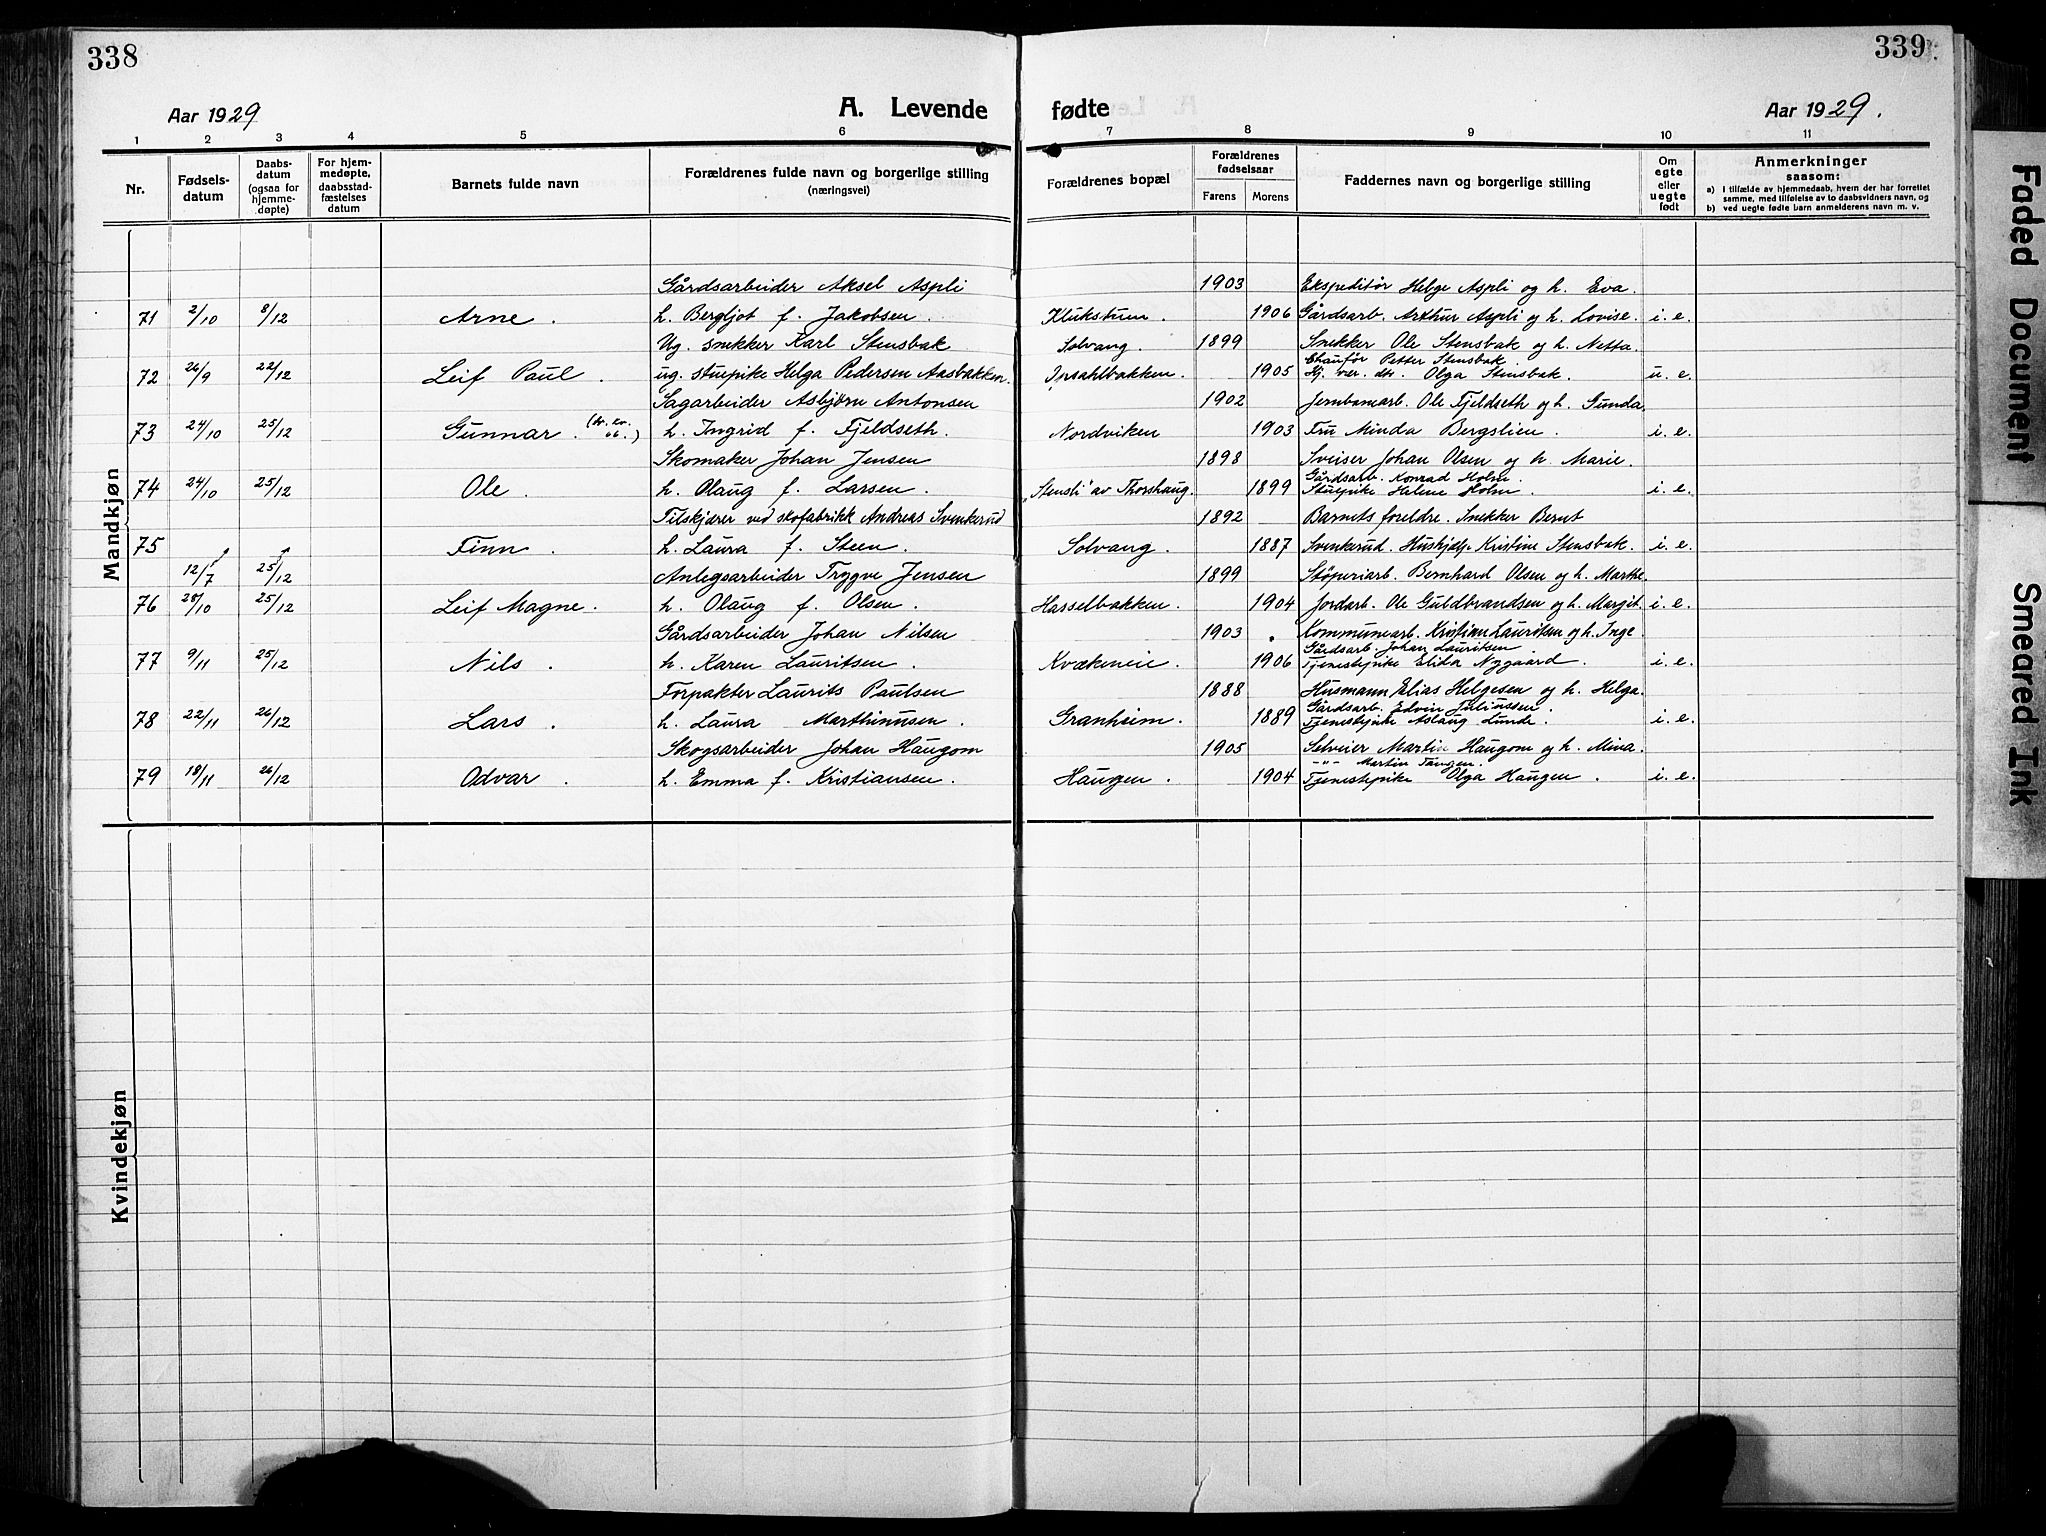 338
339
Aar 1929
A. Levende fødte
Aar 1929.
1 2 3 4 5 6 7 8 9 10 11
Nr.
Fødsels-
datum
Daabs-
datum
(ogsaa for
hjemme-
døpte)
For hjem-
medøpte,
daabsstad-
fæstelses
datum
Barnets fulde navn
Forældrenes fulde navn og borgerlige stilling
(næringsvei)
Forældrenes bopæl
Forældrenes
fødselsaar
Farens Morens
Faddernes navn og borgerlige stilling
Om
egte
eller
uegte
født
Anmerkninger
saasom:
a) I tilfælde av hjemmedaab, hvem der har forrettet
samme, med tilføielse av to daabsvidners navn, og
b) ved uegte fødte barn anmelderens navn m. v.
Mandkjøn
Gårdsarbeider Aksel Aspli 1903 Ekspeditør Helge Aspli og h. Eva.
71 2/10 8/12 Arne. h. Bergljot f. Jakobsen. Klukstuen. 1906 Gårdsarb. Arthur Aspli og h. Lovise. i. e.
Ug. snekker Karl Stensbak Solvang. 1899 Snekker Ole Stensbak og h. Netta.
Chaufør Petter Stensbak.
72 26/9 22/12 Leif Paul. ug. stuepike Helga Pedersen Aasbakken. Ipsahlbakken. 1905 Hj. vær. dtr. Olga Stensbak. u. e.
Sagarbeider Asbjørn Antonsen 1902 Jernbanearb. Ole Fjeldseth og h. Gunda.
73 24/10 25/12 Gunnar. h. Ingrid f. Fjeldseth. Nordviken 1903 Fru Minda Bergslien. i. e.
Skomaker Johan Jensen 1898 Sveiser Johan Olsen og h. Marie.
Gårdsarb. Konrad Holm.
74 24/10 25/12 Ole. h. Olaug f. Larsen. "Stensli" av Thorshaug. 1899 Stuepike Helene Holm. i. e.
Tilskjærer ved skofabrikk Andreas Svenkerud 1892 Barnets foreldre. Snekker Bernt
75 Finn. h. Laura f. Steen. Solvang. 1887 Svenkerud. Hushjælp Kristine Stensbak. i. e.
12/7 25/12 Anlegsarbeider Trygve Jensen 1899 Støperiarb. Bernhard Olsen og h. Marthe.
76 28/10 25/12 Leif Magne. h. Olaug f. Olsen. Hasselbakken. 1904 Jordarb. Ole Guldbrandsen og h. Margit. i. e.
Gårdsarbeider Johan Nilsen 1903 Kommunearb. Kristian Lauritsen og h. Inge.
Gårdsarb. Johan Lauritsen
77 9/11 25/12 Nils. h. Karen Lauritsen. Kvækeneie. 1906 Tjenestepike Elida Nygaard. i. e.
Forpakter Laurits Paulsen 1888 Husmann Elias Helgesen og h. Helga.
Gårdsarb. Edvin Juliussen.
78 22/11 26/12 Lars. h. Laura Marthinusen. Granheim. 1889 Tjenestepike Aslaug Lunde. i. e.
Skogsarbeider Johan Haugom 1905 Selveier Martin Haugom og h. Mina.
-"- Martin Tangen.
79 18/11 26/12 Odvar. h. Emma f. Kristiansen. Haugen. 1904 Tjenestepike Olga Haugen. i. e.
Kvindekjøn
Faded Document
Smeared Ink